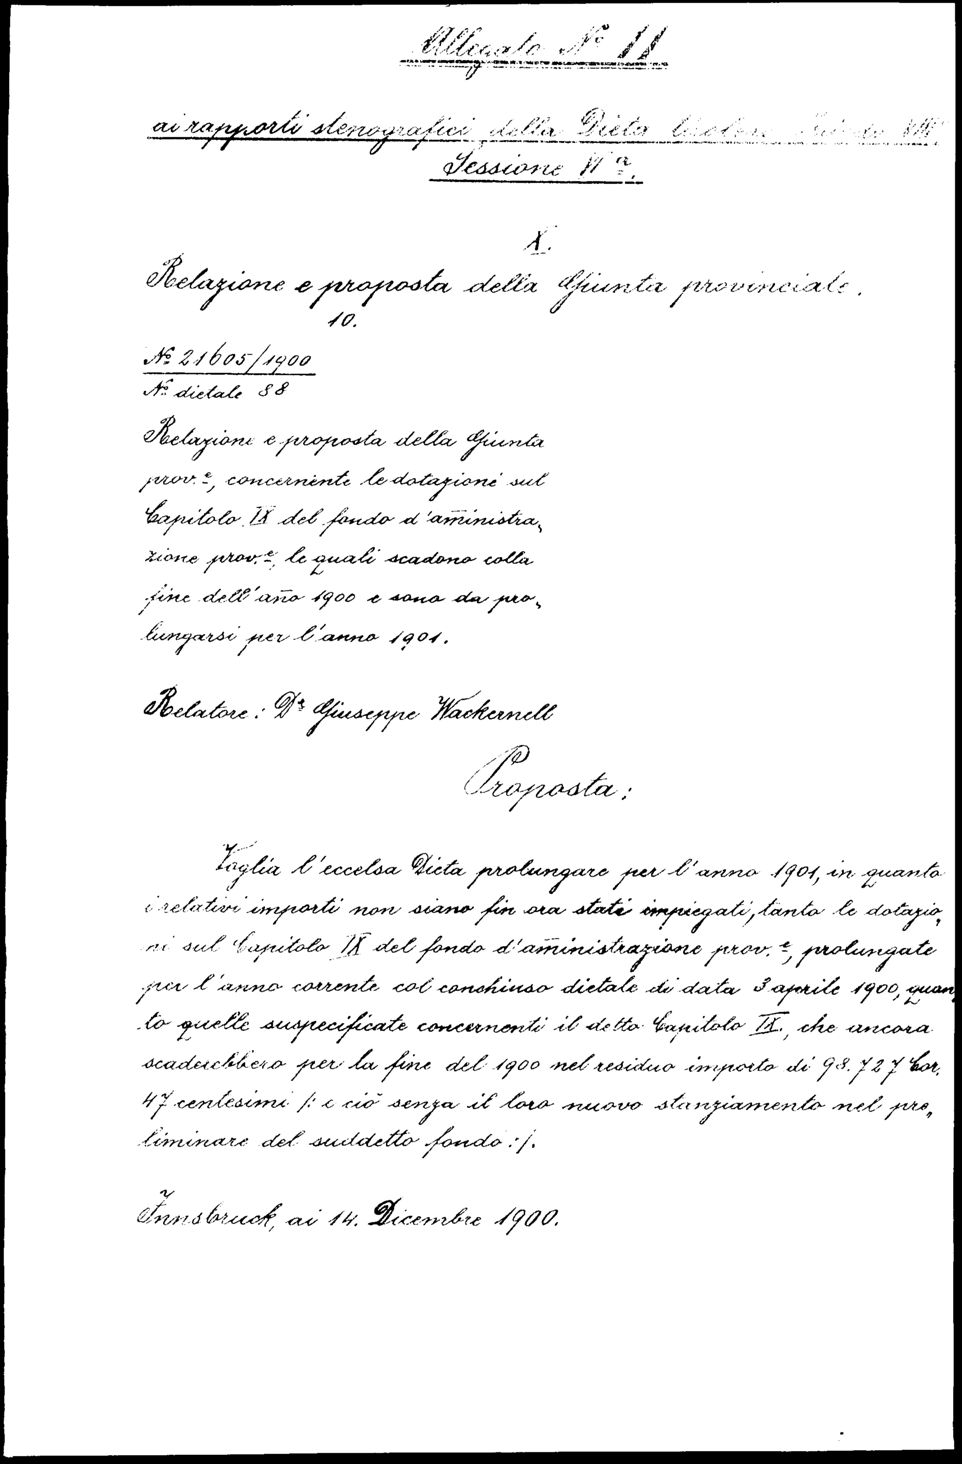 Allegato Nº 11
ai rapporti stenografici della Dieta tirolese Periodo VIII
Sessione VIª.
X.
Relazione e proposta della Giunta provinciale.
10.
Nº 21605/1900
Nº dietale 88
Relazione e proposta della Giunta
prov.e, concernente le dotazioni sul
Capitolo IX del fondo d'am̅inistra„
zione prov.e, le quali scadono colla
fine dell'an̅o 1900 e sono da pro„
lungarsi per l'anno 1901.
Relatore: Dr Giuseppe Wackernell
Proposta:
Voglia l'eccelsa Dieta prolungare per l'anno 1901, in quanto
i relativi importi non siano fin ora stati impiegati, tanto le dotazio„
ni sul Capitolo IX del fondo d'am̅inistrazione prov.e, prolungate
per l'anno corrente col conchiuso dietale di data 3 aprile 1900, quan„
to quelle suspecificate concernenti il detto Capitolo IX., che ancora
scaderebbero per la fine del 1900 nel residuo importo di 98.727 Cor.
47 centesimi /: e ciò senza il loro nuovo stanziamento nel pre„
liminare del suddetto fondo :/.
Innsbruck, ai 14. Dicembre 1900.